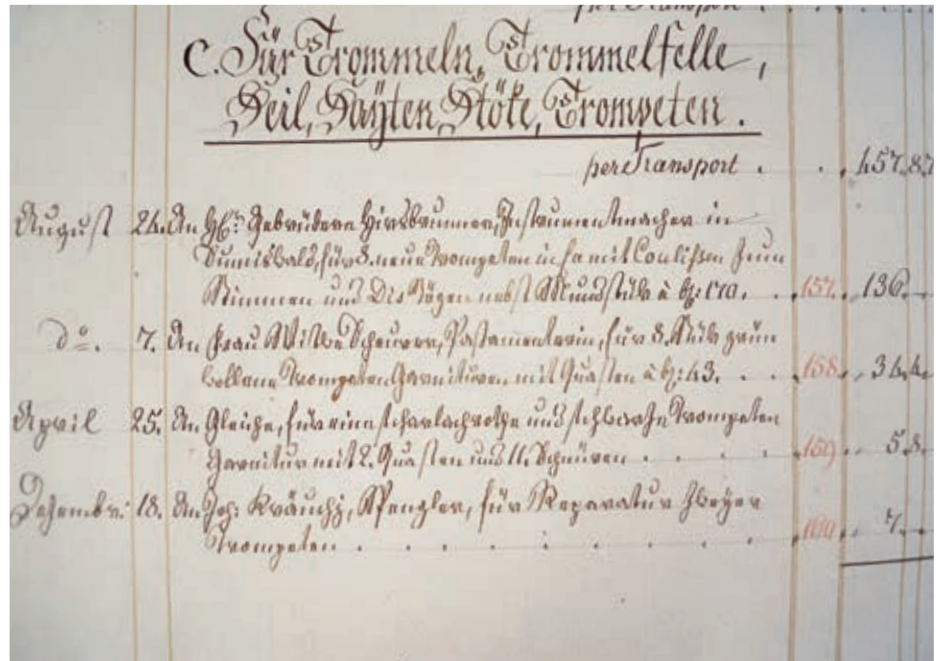 per Transport
C. Für Trommeln, Trommelfelle,
Seil, Sayten, Stöke, Trompeten.
per Transport . . . 457. 8.
August 24. An HH: Gebrüdern Hirsbrunner, Instrumentmacher in
Sumiswald, für 8. neue Trompeten in fa mit Coulissen zum
Stimmen und Dis Bögen nebst Mundstük à bz: 170. 157. 136.
do. 7. An Frau Witwe Scheurer, Posamenterin, für 8. Stük grün
wollene Trompeten Garnituren mit Quasten à bz: 43. . . 158. 34. 4.
April 25. An Gleiche, für eine scharlachrothe und schwarze Trompeten
Garnitur mit 2. Quasten und 11. Schnüren . . . . 159. 5. 8.
Dezembr: 18. An Joh: Kräuchj, Spengler, für Reparatur zweyer
Trompeten . . . . . . . . 160. 7.